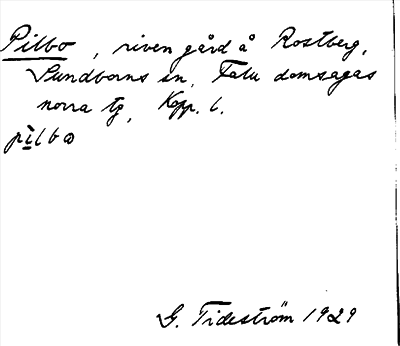 Pilbo, riven gård å Rostberg,
Sundborns sn, Falu domsagas
norra tg, Kopp. l.
pìlbω
G. Tideström 1929